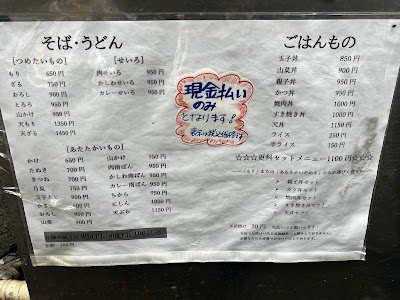 そば・うどん
[つめたいもの]
もり 650円
ざる 750円
おろし 950円
とろろ 950円
山かけ 950円
天もり 1350円
天ざる 1450円
[せいろ]
肉せいろ 950円
かしわせいろ 950円
カレーせいろ 950円
[あたたかいもの]
かけ 650円
たぬき 700円
きつね 700円
月見 750円
玉子とじ
おろし
山菜 900円
山かけ 950円
肉南ばん 950円
かしわ南ばん 950円
カレー南ばん 950円
ちから 950円
にしん 1000円
天ぷら 1150円
現金払い
のみ
となります!
ごはんもの
玉子丼 850円
山菜丼 900円
親子丼 950円
かつ丼 950円
焼肉丼 1000円
すき焼き丼 1000円
天丼 1150円
ライス 250円
半ライス 150円
☆☆☆更科セットメニュー 1100円☆☆☆
・親子丼セット
・カツ丼セット
・焼肉丼セット
・すき焼き丼セット
・天丼セット